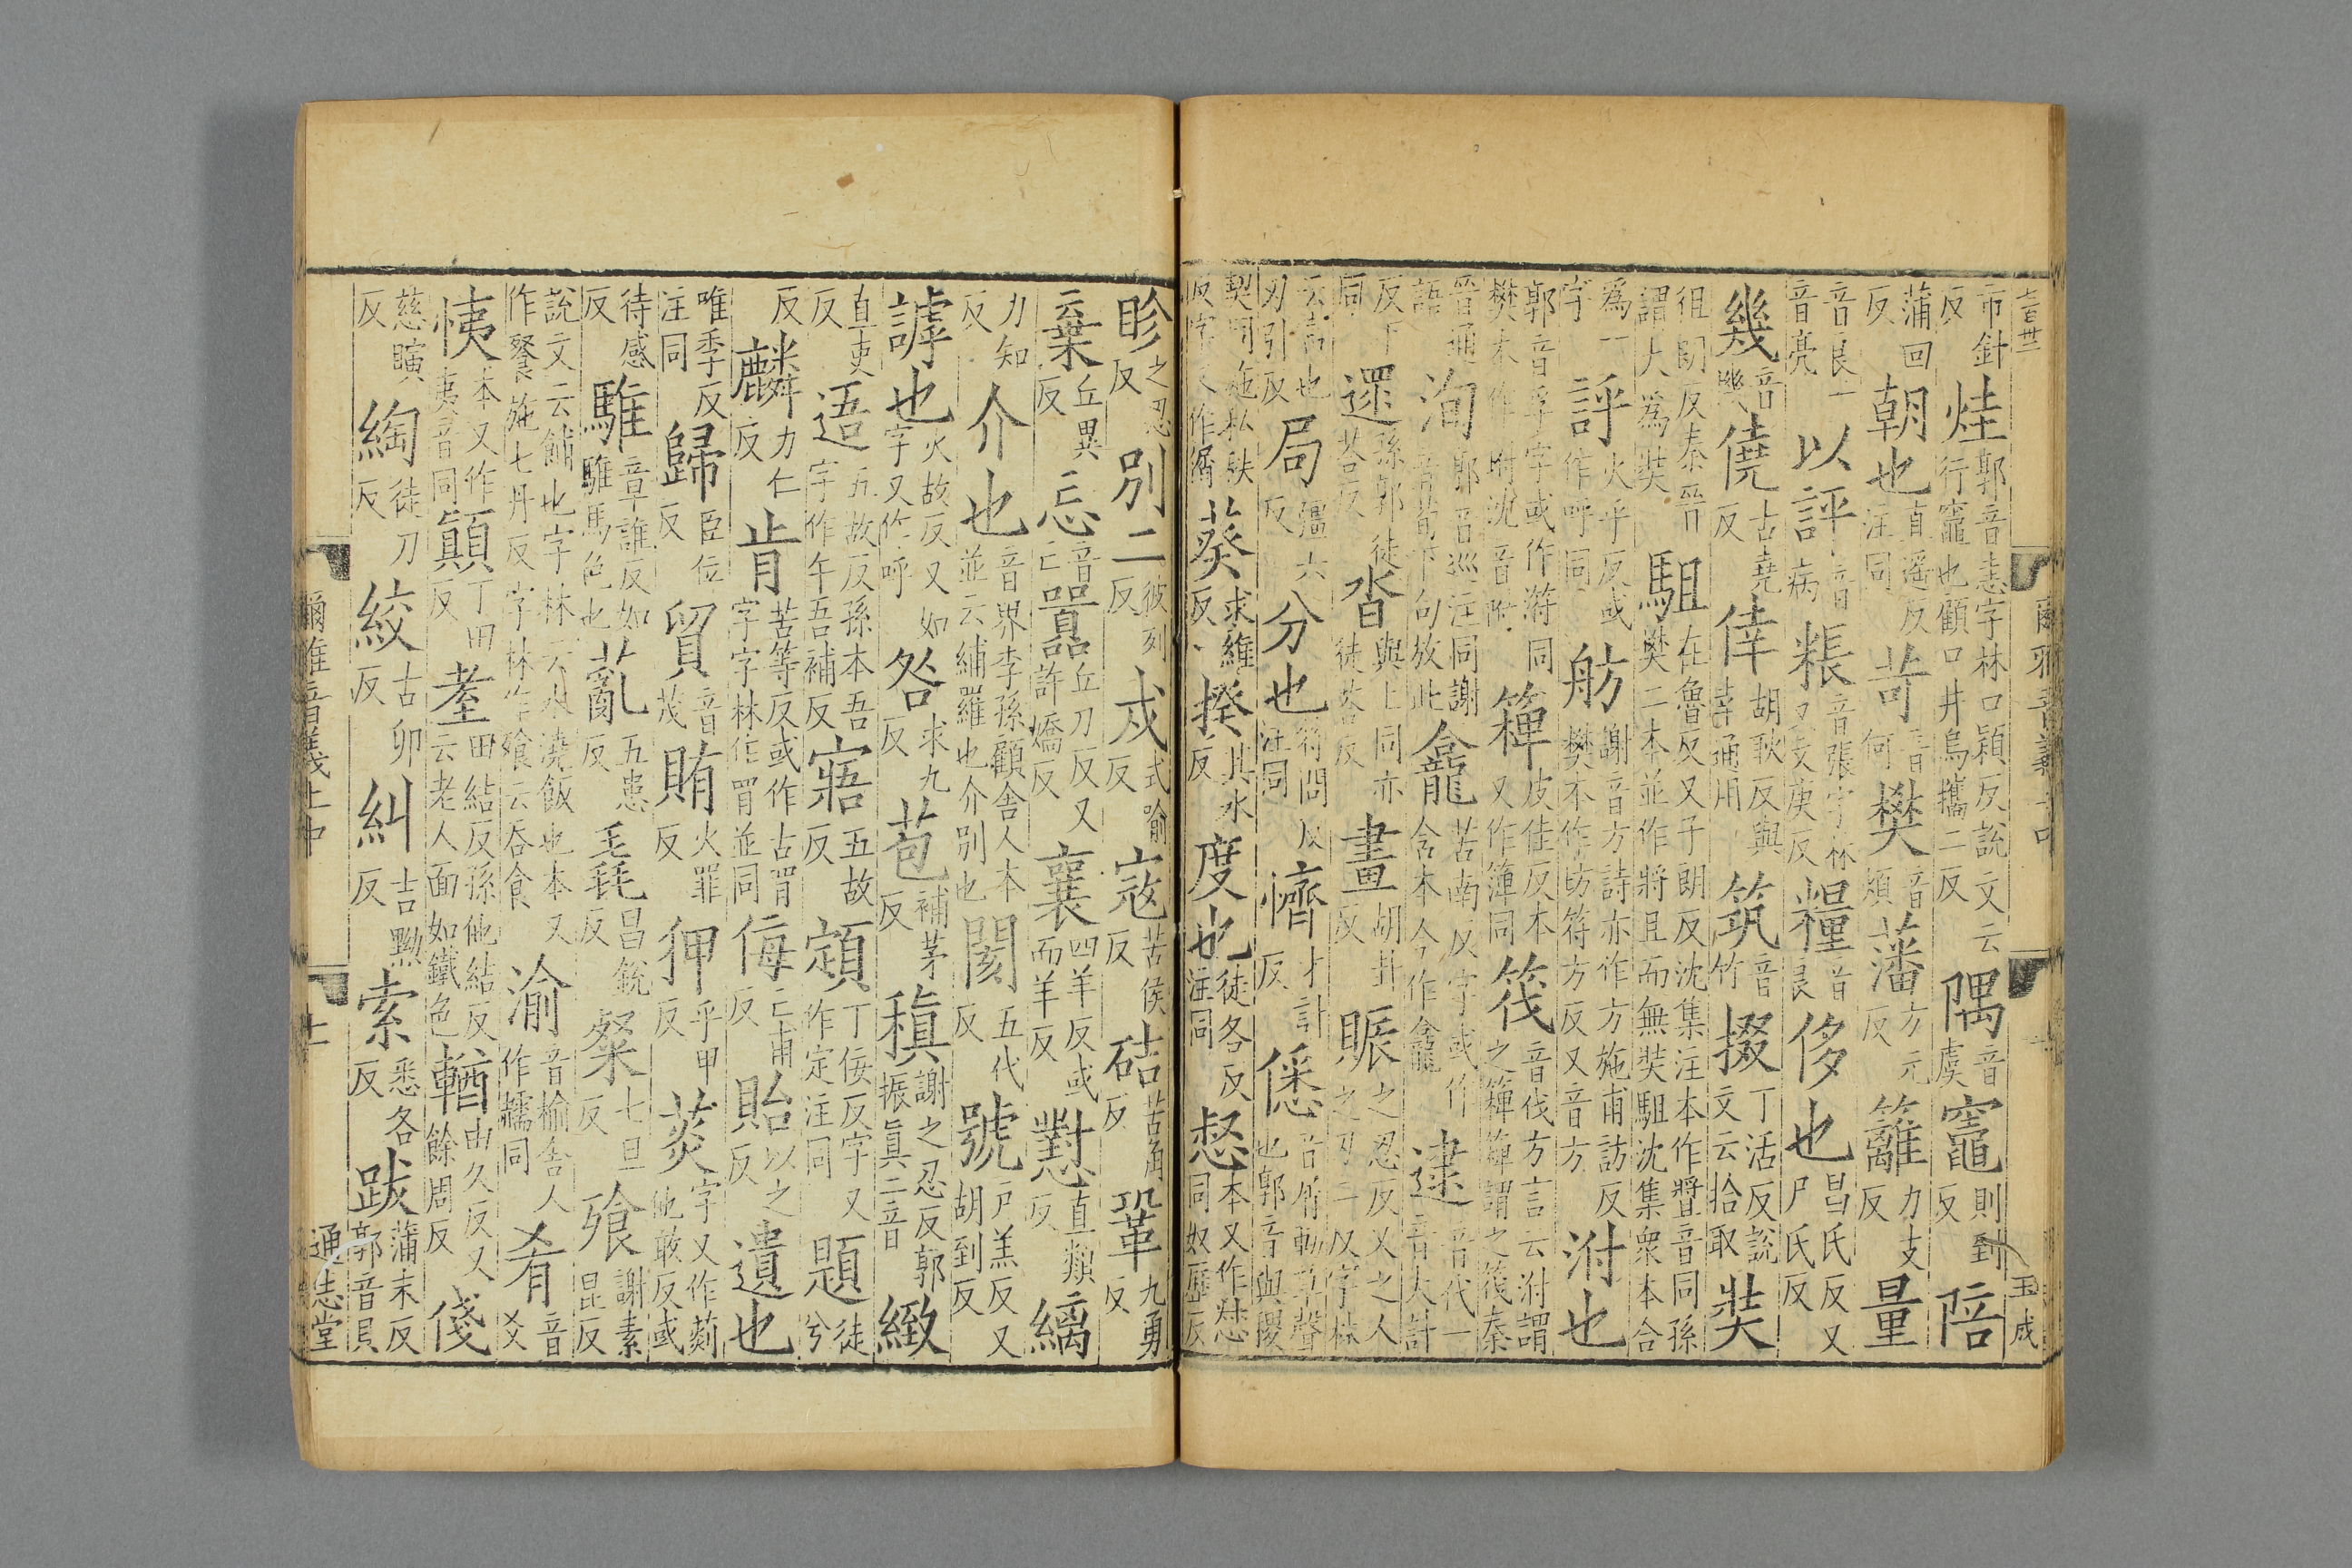 市針反烓郭音恚字林口穎反說文云行竈也顧口井烏攜二反隅音虞竈則到反陪
蒲回反朝也直遥反注同苛音何樊音煩藩方元反籬力支反量
音良一音亮以評音病粻音張字林又丈庚反糧音良侈也昌氏反又尸氏反
幾音機僥古堯反倖胡耿反與幸通用筑音竹掇丁活反說文云拾取奘
徂朗反秦晉謂大爲奘駔在魯反又子朗反沈集注本作將音同孫樊二本並作將且而無奘駔沈集衆本合
爲一字評火乎反或作呼同舫謝音方詩亦作方施甫訪反樊本作坊符方反又音方泭也
郭音孚字或作㳺同樊本作柎沈音附簰皮佳反本又作簿同筏音伐方言云泭謂之簰簰謂之筏秦
晉通語洵郭音巡注同謝音荀下句放此龕苦南反字或作含本今作龕逮音代一音大計
反下同遝孫郭徒荅反沓與上同亦徒荅反畫胡卦反賑之忍反又之人之刃二反字林
云富也刃引反局彊六反分也符問反注同懠才計反僁言屑動草聲也郭音與㥦
契同施私秩反字又作屑葵求維反揆其水反度也徒各反注同惄本又作㤉同奴歷反
眕之忍反別二彼列反戍式喻反寇苦侯反硈苦角反鞏九勇反
棄丘異反忘音亡嚻丘刀反又許嬌反襄四羊反或而羊反懟直類反縭
力知反介也音界李孫顧舍人本並云縭羅也介別也閡五代反號戶羔反又胡到反
謼也火故反又如字又作呼咎求九反苞補茅反稹謝之忍反郭振眞二音緻
直吏反逜五故反孫本吾字作午吾補反寤五故反顁丁佞反字又作定注同題徒兮
反麟力仁反肯苦等反或作古肎字字林作肎並同侮亡甫反貽以之反遺也
唯季反注同歸臣位反貿音茂賄火罪反狎乎甲反菼字又作䓤他敢反或
待感反騅章誰反如騅馬色也薍五患反毳昌銳反粲七旦反飱謝素昆反
說文云餔也字林云水澆飯也本又作䬸施七丹反字林作飱云吞食渝音榆舍人作糯同肴音爻
恞本又作夷音同顚丁田反耋田結反孫他結反又云老人面如鐵色輶由久反又餘周反俴
慈㬐反綯徒刀反絞古卯反糾吉黝反索悉各反跋蒲末反郭音貝
爾雅音義上中
通志堂